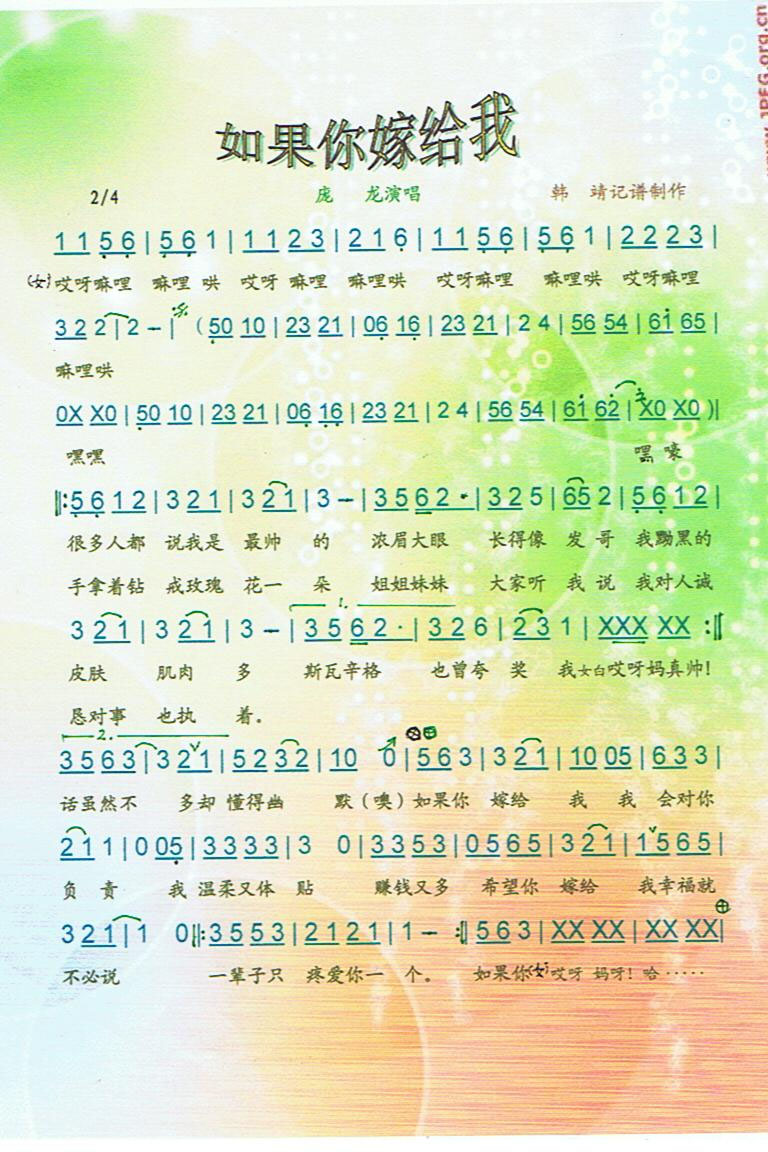 www.JPEG.org.cn
如果你嫁给我
2/4 庞 龙演唱 韩 靖记谱制作
1 1 5 6 | 5 6 1 | 1 1 2 3 | 2 1 6 | 1 1 5 6 | 5 6 1 | 2 2 2 3 |
(女)哎呀嘛哩 嘛哩 哄 哎呀 嘛哩 嘛哩哄 哎呀嘛哩 嘛哩哄 哎呀嘛哩
3 2 2 | 2 – | ( 50 10 | 23 21 | 06 16 | 23 21 | 2 4 | 56 54 | 61 65 |
嘛哩哄
0X X0 | 50 10 | 23 21 | 06 16 | 23 21 | 2 4 | 56 54 | 61 62 | X0 X0 )|
嘿嘿 嘿 嚎
‖: 5 6 1 2 | 3 2 1 | 3 2 1 | 3 – | 3 5 6 2 · | 3 2 5 | 65 2 | 5 6 1 2 |
很多人都 说我是 最帅 的 浓眉大眼 长得像 发 哥 我黝黑的
手拿着钻 戒玫瑰 花一 朵 姐姐妹妹 大家听 我 说 我对人诚
1.
3 2 1 | 3 2 1 | 3 – | 3 5 6 2 · | 3 2 6 | 2 3 1 | XXX XX :‖
皮肤 肌肉 多 斯瓦辛格 也曾夸 奖 我女白哎呀妈真帅!
恳对事 也执 着。
2.
3 5 6 3 | 3 2 1 | 5 2 3 2 | 10 0 | 5 6 3 | 3 2 1 | 10 05 | 6 3 3 |
话虽然不 多却 懂得幽 默(噢)如果你 嫁给 我 我 会对你
2 1 1 | 0 05 | 3 3 3 3 | 3 0 | 3 3 5 3 | 0 5 6 5 | 3 2 1 | 1 5 6 5 |
负 责 我 温柔又体 贴 赚钱又多 希望你 嫁给 我幸福就
3 2 1 | 1 0 ‖: 3 5 5 3 | 2 1 2 1 | 1 – :‖ 5 6 3 | XX XX | XX XX |
不必说 一辈子只 疼爱你一 个。 如果你(女)哎呀 妈呀! 哈 ·····